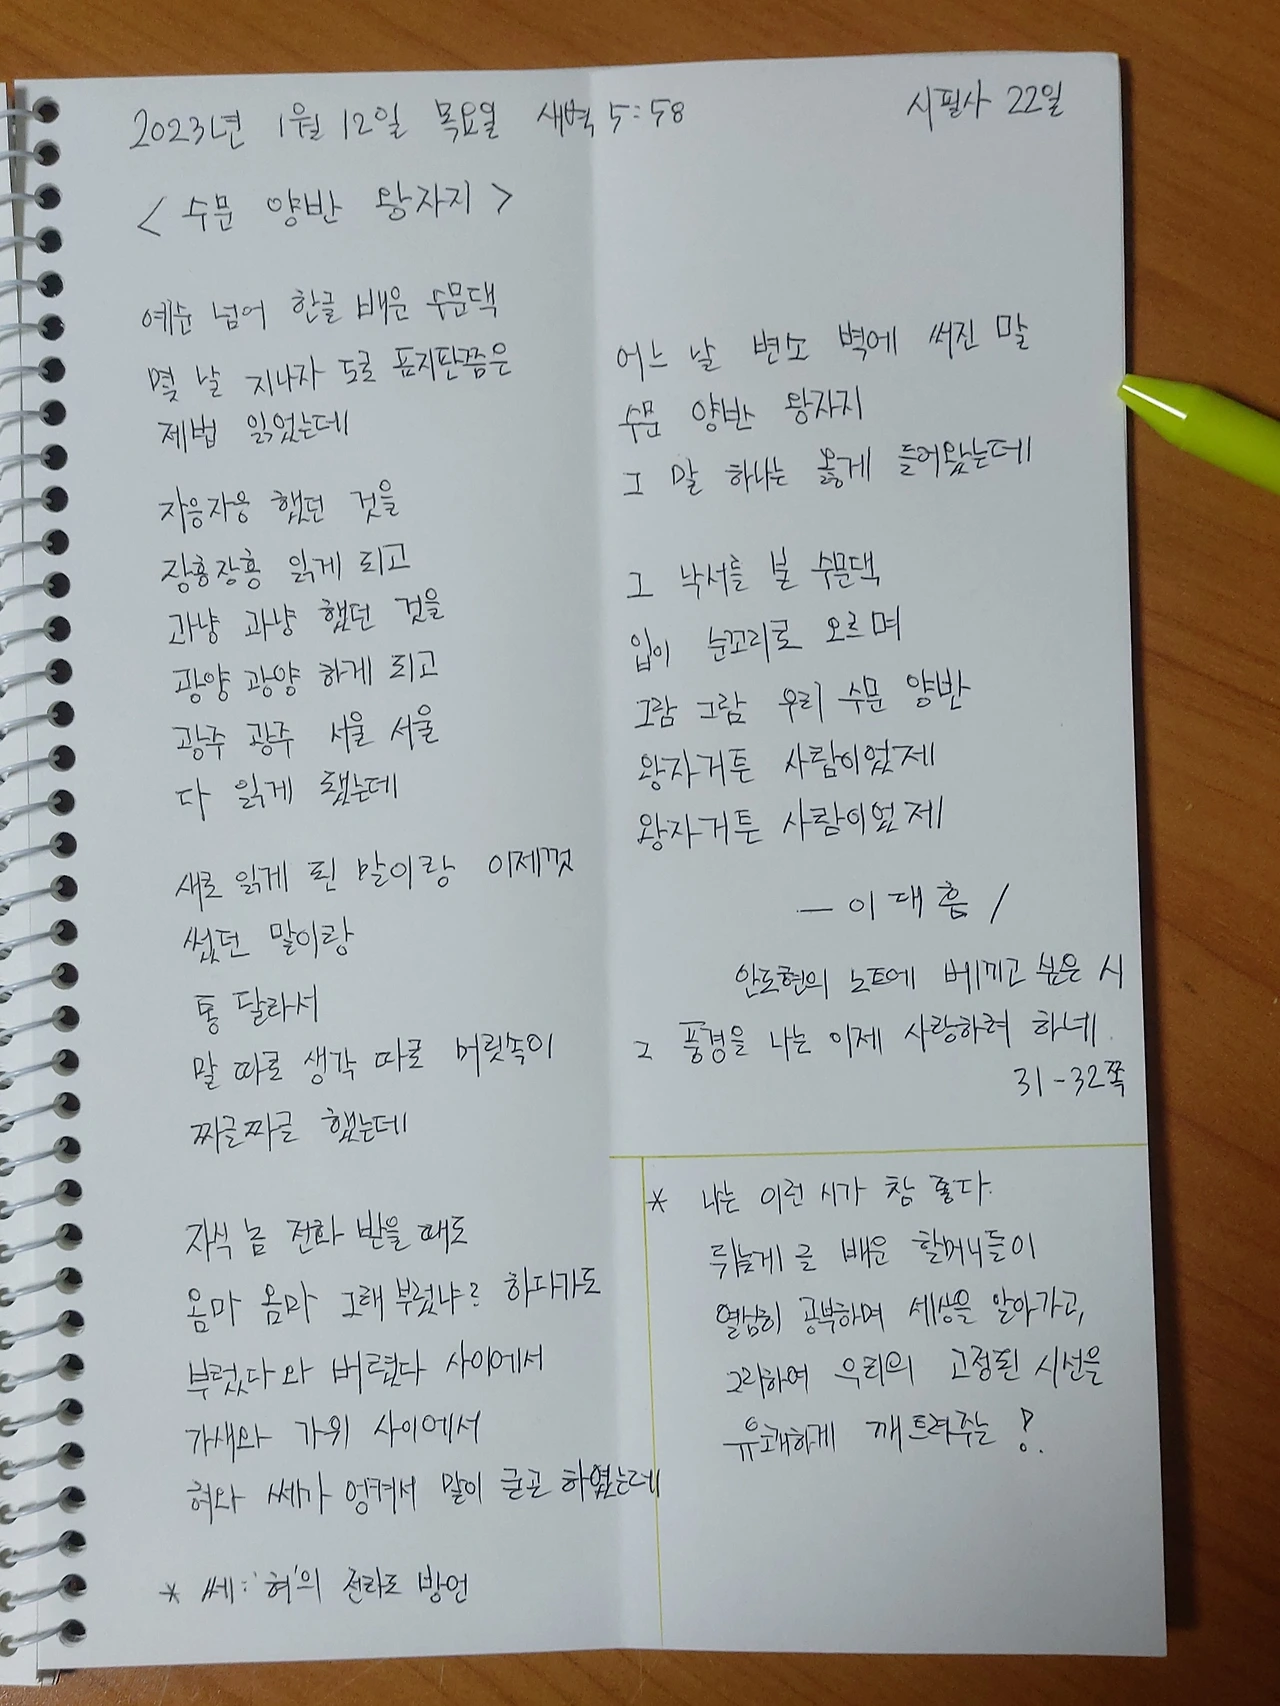 2023년 1월 12일 목요일 새벽 5:58
시필사 22일
< 수문 양반 왕자지 >
예순 넘어 한글 배운 수문댁
몇 날 지나자 도로 표지판쯤은
제법 읽었는데
자응자응 했던 것을
장흥장흥 읽게 되고
과냥 과냥 했던 것을
광양 광양 하게 되고
광주 광주 서울 서울
다 읽게 됐는데
새로 읽게 된 말이랑 이제껏
썼던 말이랑
통 달라서
말 따로 생각 따로 머릿속이
짜글짜글 했는데
자식 놈 전화 받을 때도
옴마 옴마 그래 부렀냐? 하다가도
부렀다와 버렸다 사이에서
가새와 가위 사이에서
혀와 쎄가 엉켜서 말이 굳곤 하였는데
* 쎄: '혀'의 전라도 방언
어느 날 변소 벽에 써진 말
수문 양반 왕자지
그 말 하나는 옳게 들어왔는데
그 낙서를 본 수문댁
입이 눈꼬리로 오르며
그람 그람 우리 수문 양반
왕자거튼 사람이었제
왕자거튼 사람이었제
— 이대흠 /
안도현의 노트에 베끼고 싶은 시
그 풍경을 나는 이제 사랑하려 하네.
31-32쪽
* 나는 이런 시가 참 좋다.
뒤늦게 글 배운 할머니들이
열심히 공부하며 세상을 알아가고,
그리하여 우리의 고정된 시선을
유쾌하게 깨트려주는 !.